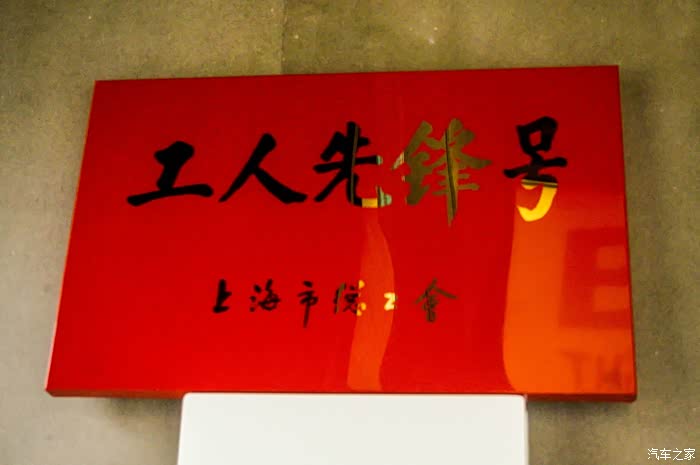 工人先锋号
上海市总工会
TH
汽车之家